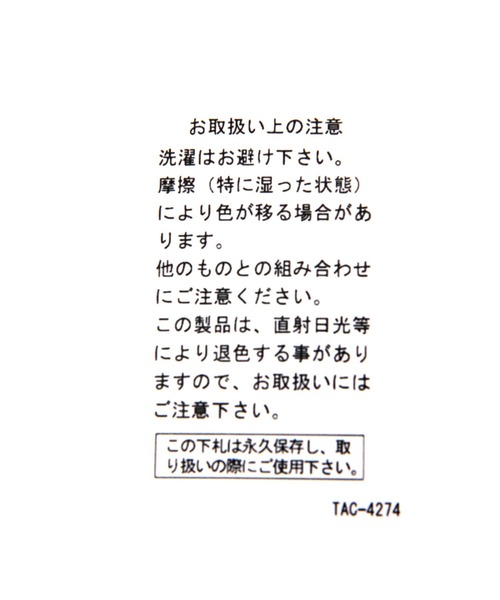 お取扱い上の注意
洗濯はお避け下さい。
摩擦（特に湿った状態）
により色が移る場合があ
ります。
他のものとの組み合わせ
にご注意ください。
この製品は、直射日光等
により退色する事があり
ますので、お取扱いには
ご注意下さい。
この下札は永久保存し、取
り扱いの際にご使用下さい。
TAC-4274